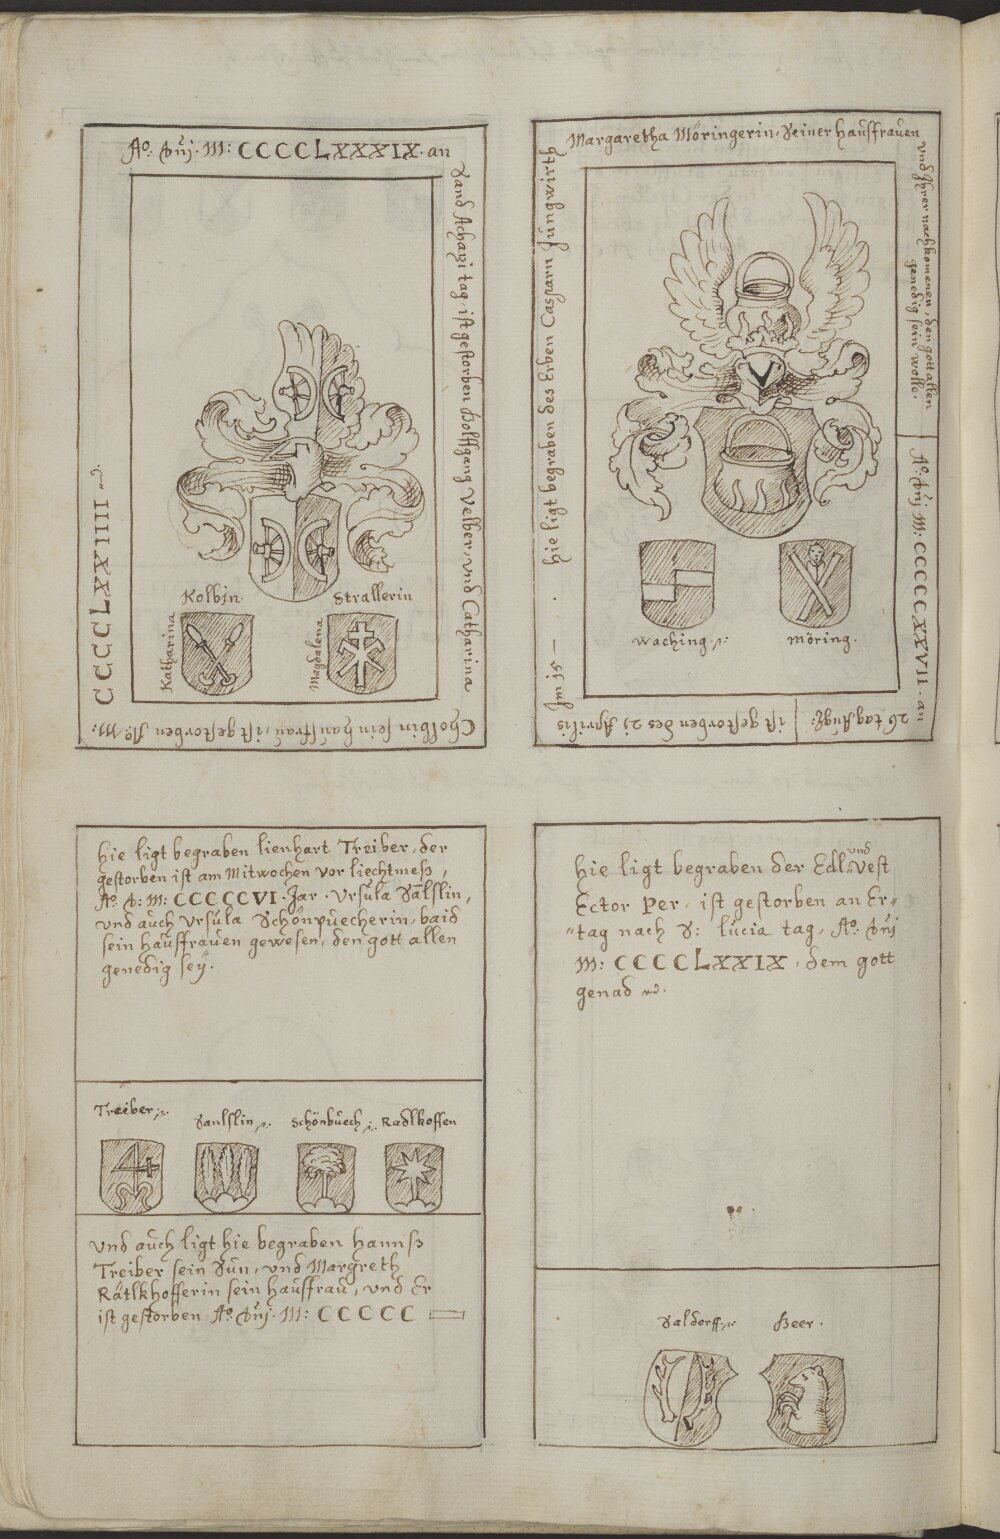 Aº: Dnj. M: CCCCLXXXIX. an
Sand Achazi tag, ist gestorben Wolffgang Velber, und Catharina
Cholbin sein haussfrau, ist gestorben Aº. M:
CCCCLXXIIII
Kolbin.
Strallerin
Katharina
Magdalena
Im 15 — . hie ligt begraben des Erben Casparn Jüngwirth
Margaretha Möringerin, Seiner haüssfraüen
und Ihrer nachkomenen, den gott allen
genedig sein wolle.
Aº: Dnj M: CCCCCXXVII. an
26 tag Aug:
ist gestorben des 21 Aprilis
Waching
Möring.
Hie ligt begraben lienhart Treiber, der
gestorben ist am Mitwochen vor liechtmeß,
Aº. D: M: CCCCCVI. Jar. Ursüla Sälslin,
und auch Ursüla Schönpüecherin, baid
sein haüssfrauen gewesen, den gott allen
genedig seÿ.
Treiber
Sanlslin
Schönbüech
Radlkoffen
Und aüch ligt hie begraben Hannß
Treiber sein Sün, und Margreth
Rätlkhofferin sein haüssfraü, und Er
ist gestorben Aº. Dnj. M: CCCCC
Hie ligt begraben der Edl und Vest
Ector Per, ist gestorben an Er=
=tag nach S: lücia tag, Aº. Dnj
M: CCCCLXXIX, dem gott
genad
Saldorff
Beer.